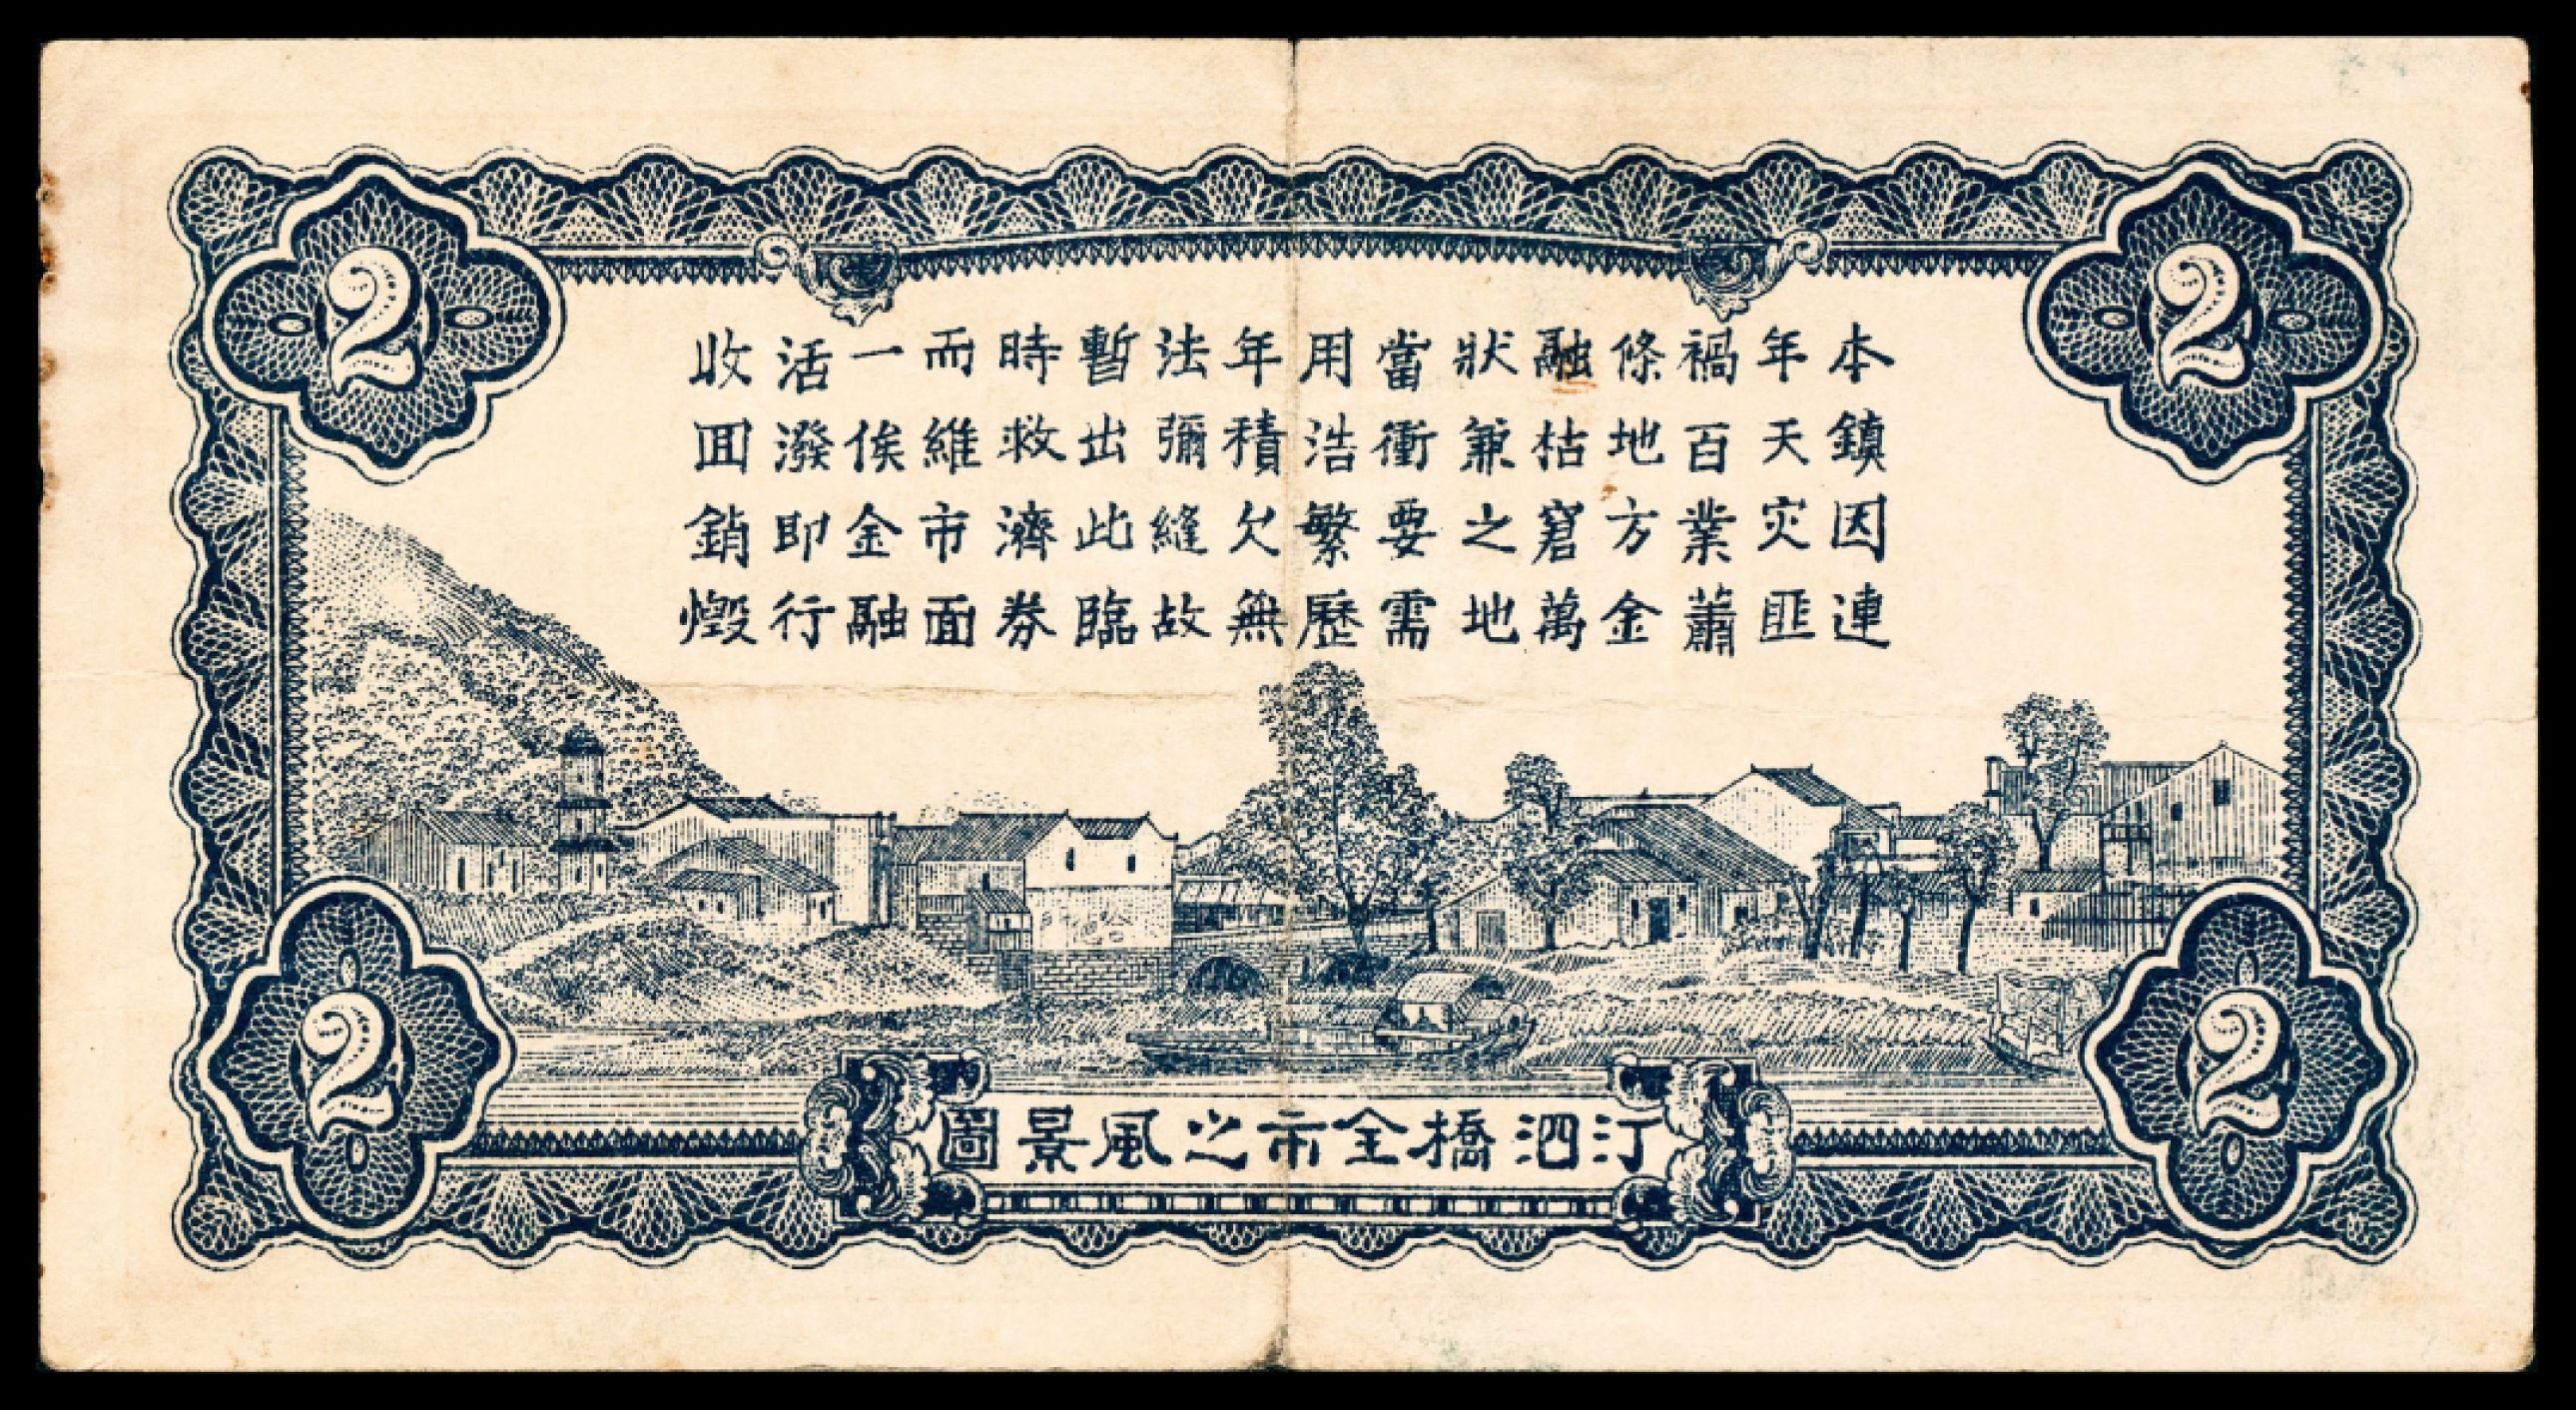 2
2
本鎮因連
年天灾匪
禍百業蕭
條地方金
融枯窘萬
狀兼之地
當衝要需
用浩繁歷
年積欠無
法彌縫故
暫出此臨
時救濟券
而維市面
一俟金融
活潑即行
收回銷燬
汀泗橋全市之風景圖
2
2